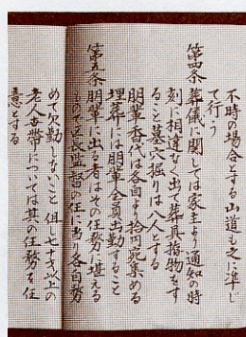 不時の場合とする山道も之に準し
て行う
第四条 葬儀に関しては家主より通知の時
刻に相違なく出て葬具指物をす
ること墓穴掘りは八人とする
朋輩香代は各自より拾円宛集める
埋葬には朋輩全員出勤すること
第五条 朋輩に出る者はその任務に堪える
もので区長監督の任に当り各自努
めて欠勤しないこと 但し七十才以上の
老人世帯については其の任務を任
意とする